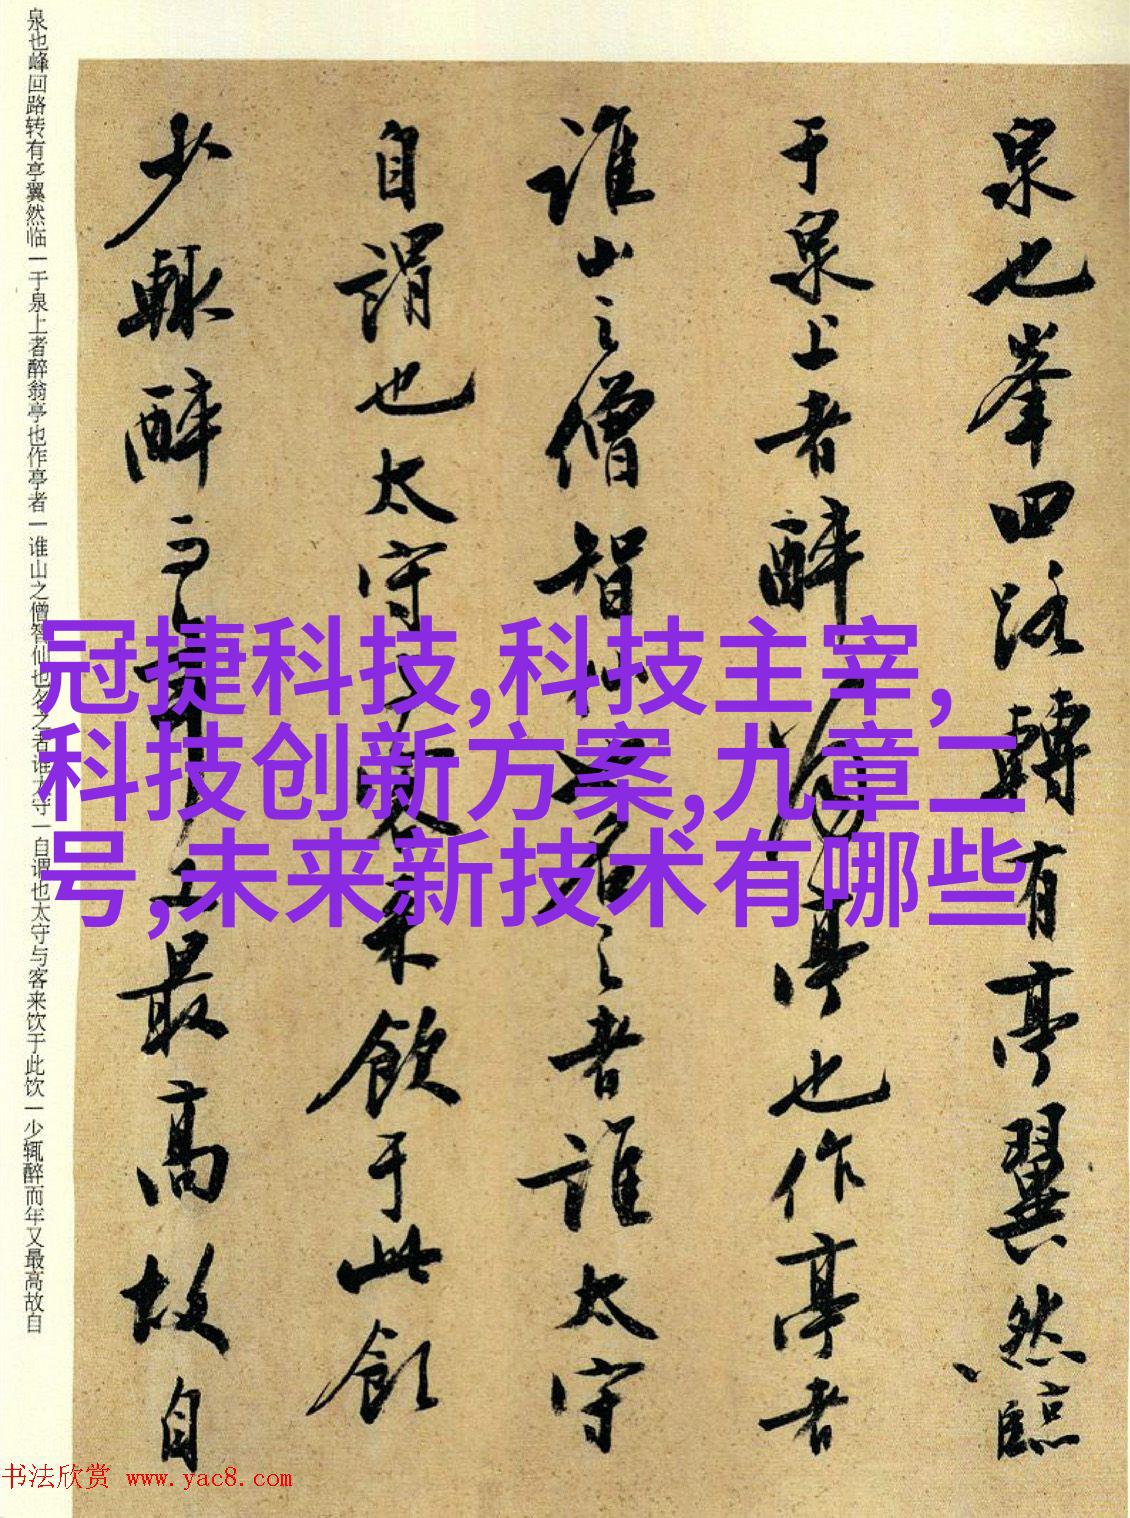 泉也峰回路转有亭翼然临一于泉上者醉翁亭也作亭者一谁山之僧智仙也名之者谁太守一自谓也太守与客来饮于此饮一少辄醉而年又最高故自
泉也峯回路轉有亭翼然臨
于泉上者醉翁亭也作亭者
誰山之僧智仙也名之者誰太守
自謂也太守与客来飲于此飲
少輒醉而年又最高故自
冠捷科技,科技主宰,
科技创新方案,九章二
号,未来新技术有哪些
书法欣赏 www.yac8.com